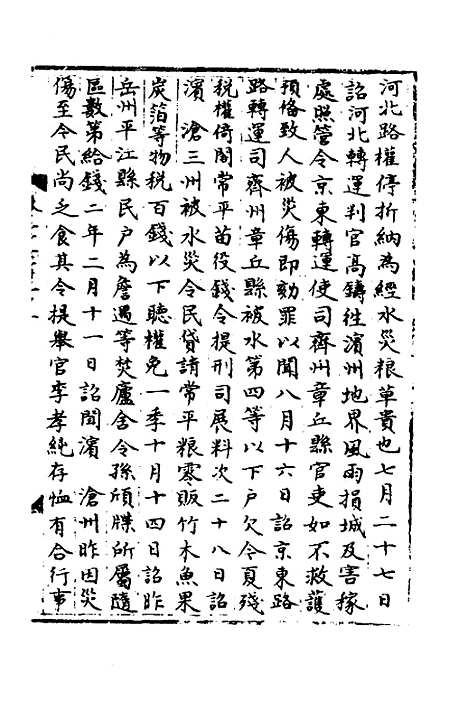 河北路權停折納為經水災粮草貴也七月二十七日
詔河北轉運判官高鑄徃濱州地界風雨損城及害稼
處照管令京東轉運使司齊州章丘縣官吏如不救護
預俻致人被災傷即劾罪以聞八月十六日詔京東路
路轉運司齊州章丘縣被水第四等以下戶欠今夏殘
税權倚閣常平苗役錢令提刑司展料次二十八日詔
濱 滄三州被水災令民貸請常平粮寒販竹木魚果
炭箔等物税百錢以下聽權免一季十月十四日詔昨
岳州平江縣民戶為詹遇等焚廬舍令孫頎牒所屬隨
區數第給錢二年二月十一日詔聞濱 滄州昨因災
傷至今民尚乏食其令提舉官李孝純存恤有合行事